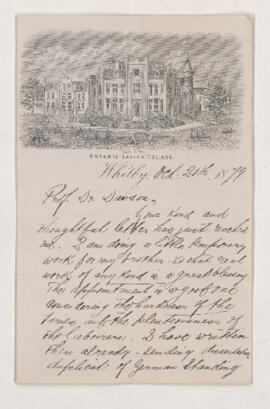 ONTARIO LADIES' COLLEGE.
Whitby, Oct. 20th 1879
Prof. Dr. Dawson,
Your kind and
thoughtful letter has just reached
me. I am doing a little temporary
work for my brother. So that real
work of any kind is a great blessing
The appointment is a good one
considering the hardness of the
times and the plenteousness of
the laborers. I have written
them already - sending
duplicate of German Standing